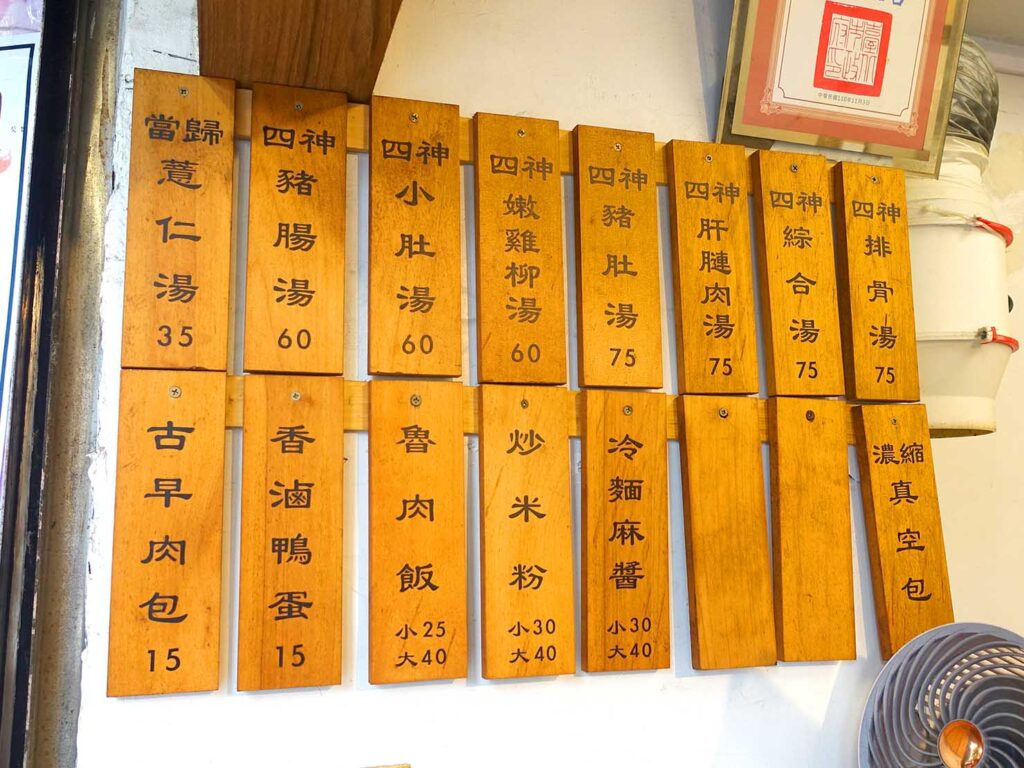 當歸薏仁湯 35
四神豬腸湯 60
四神小肚湯 60
四神嫩雞柳湯 60
四神豬肚湯 75
四神肝腱肉湯 75
四神綜合湯 75
四神排骨湯 75
古早肉包 15
香滷鴨蛋 15
魯肉飯 小25 大40
炒米粉 小30 大40
冷麵麻醬 小30 大40
濃縮真空包